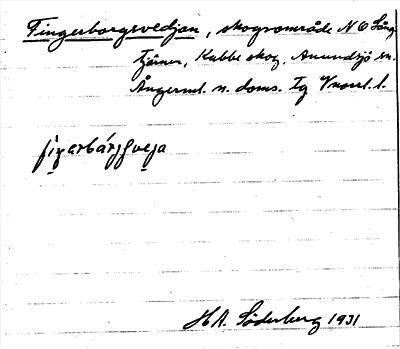 Fingerborgsvedjan, skogsområde N O Lång
tjärnen, Kubbe skog, Anundsjö sn.
Ångerml. n. doms. Tg Vnorrl. l.
H A. Söderberg 1931